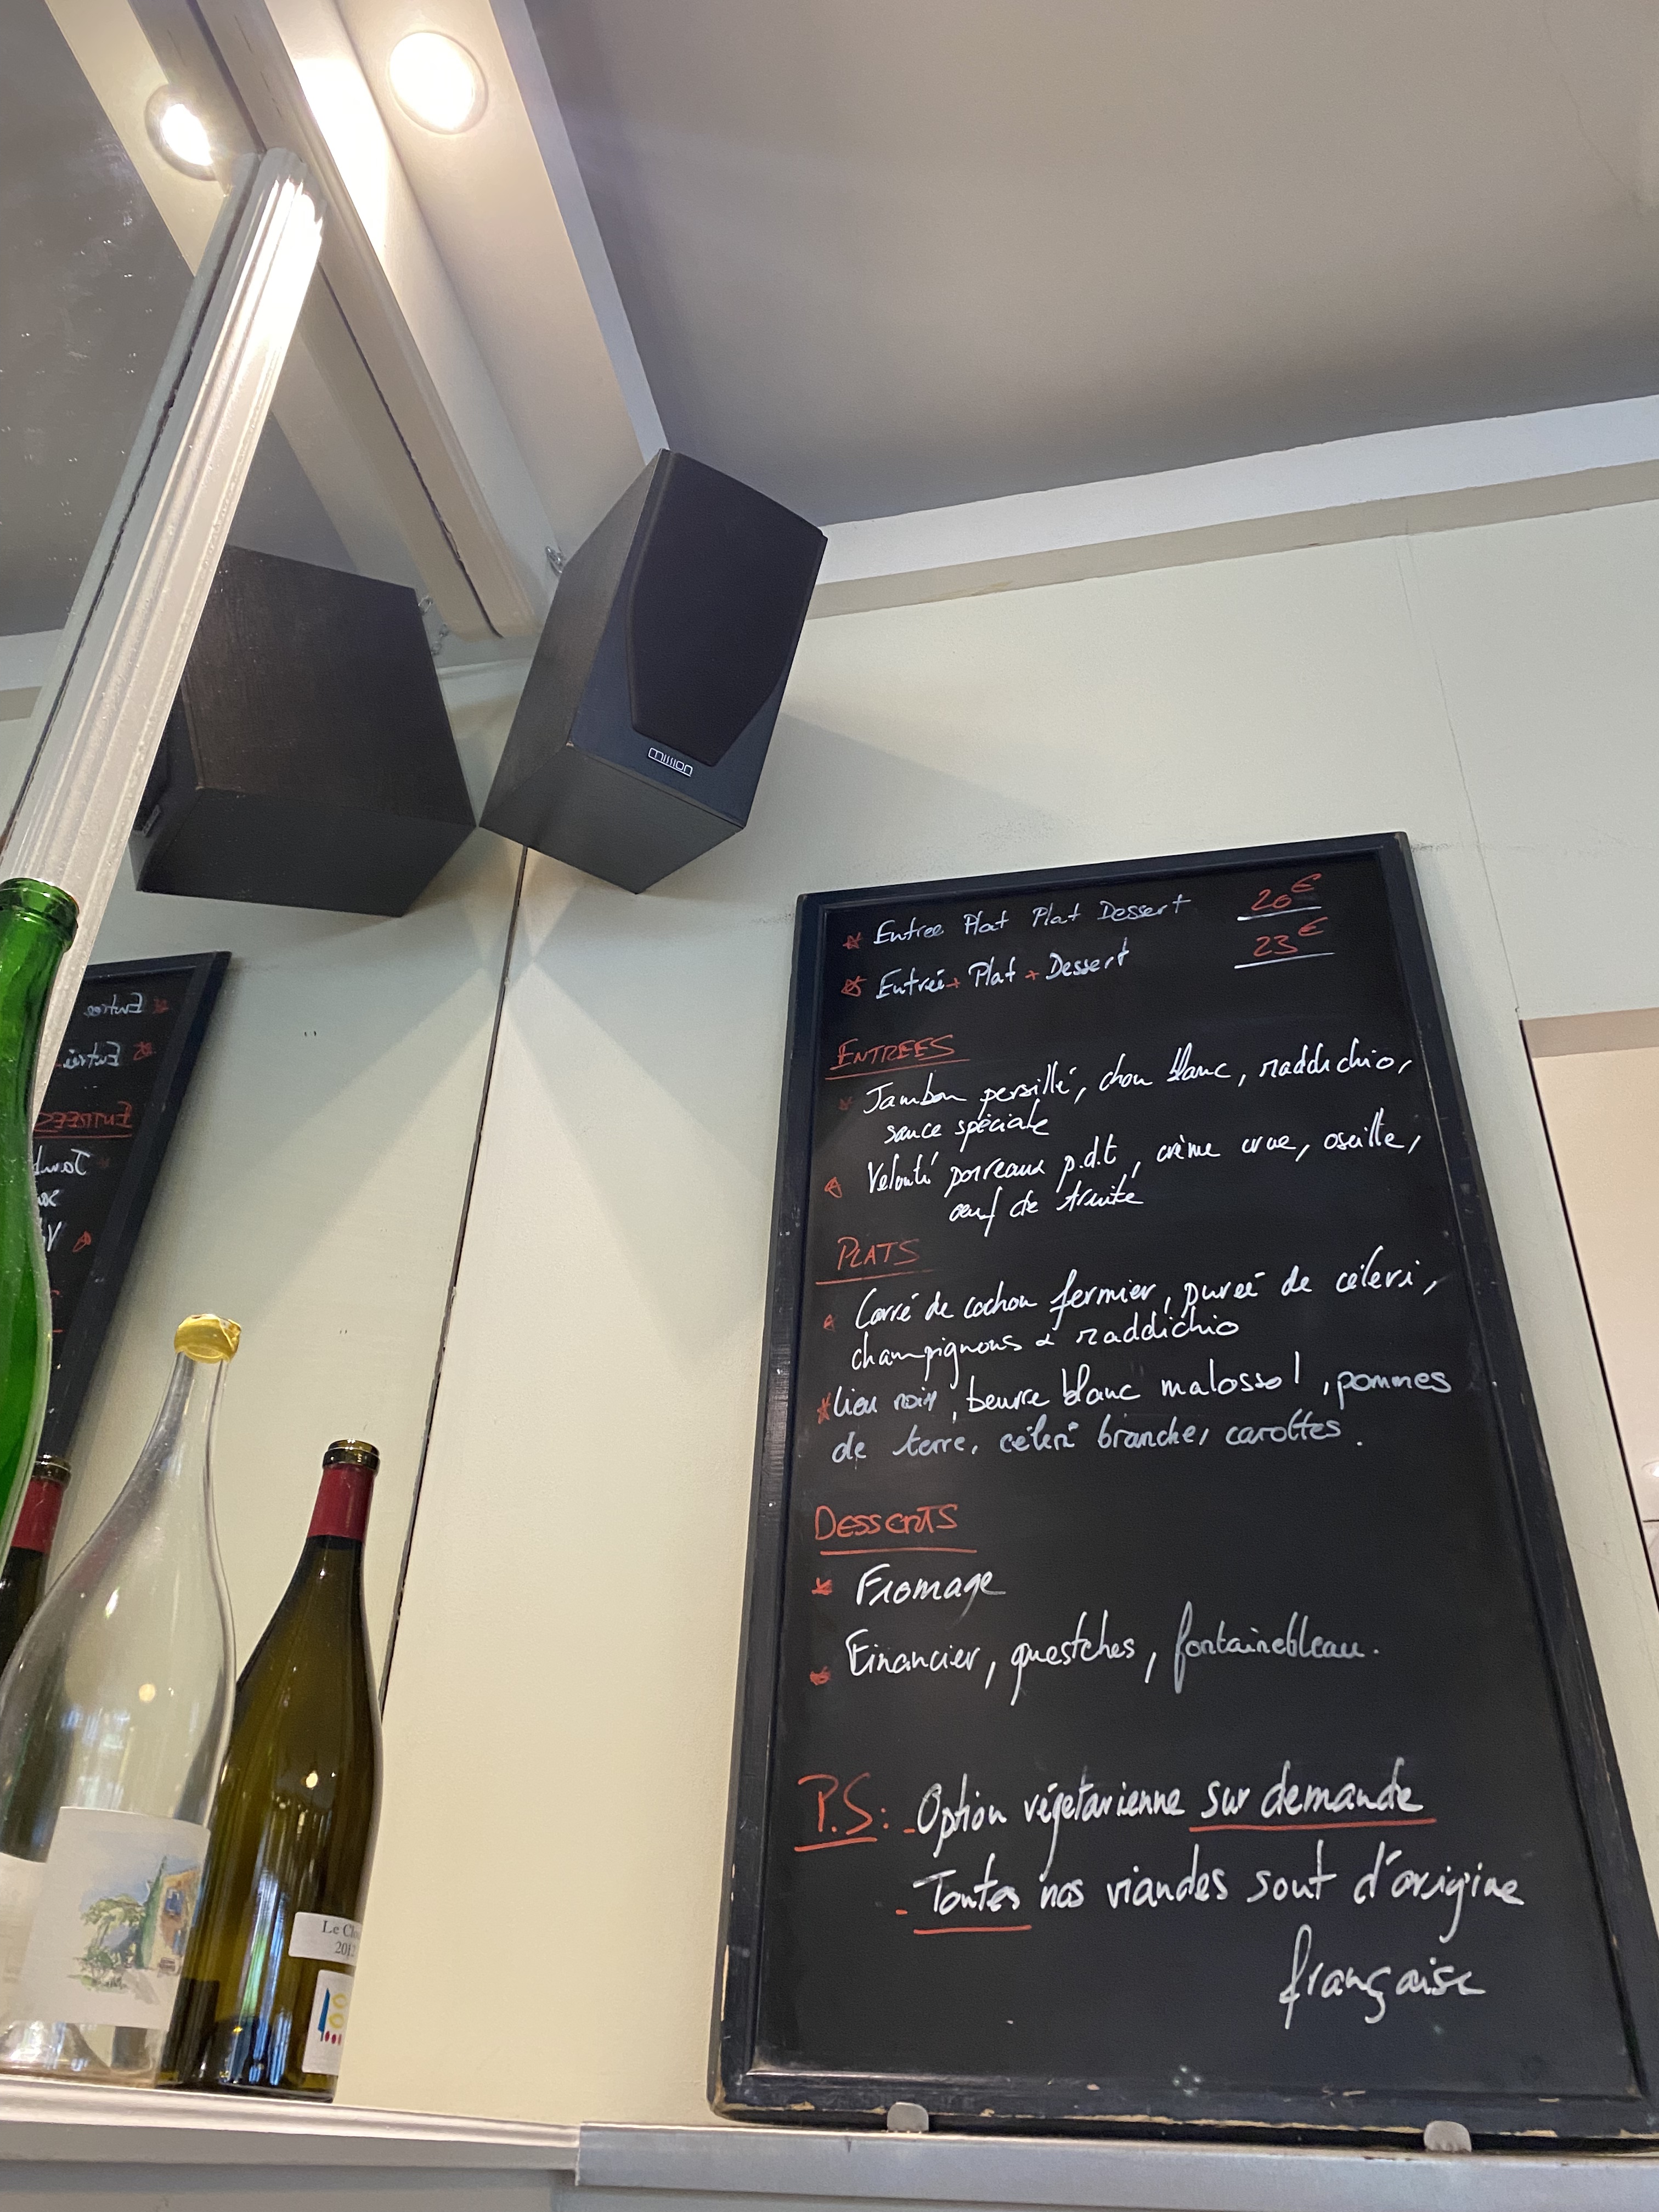 mission
Entree Plat Plat Dessert 20€
Entrée + Plat + Dessert 23€
ENTREES
Jambon persillé, chou blanc, raddichio,
sauce spéciale
Velouté porreaux p.d.t, crème crue, oseille,
œuf de truite
PLATS
Carré de cochon fermier, pureé de céleri,
champignons & raddichio
Lieu noir, beurre blanc malossol, pommes
de terre, céleri branche, carottes.
Desserts
Fromage
Financier, questches, fontainebleau.
P.S: - Option végétarienne sur demande
- Toutes nos viandes sont d'origine
française
Le Clo
2012